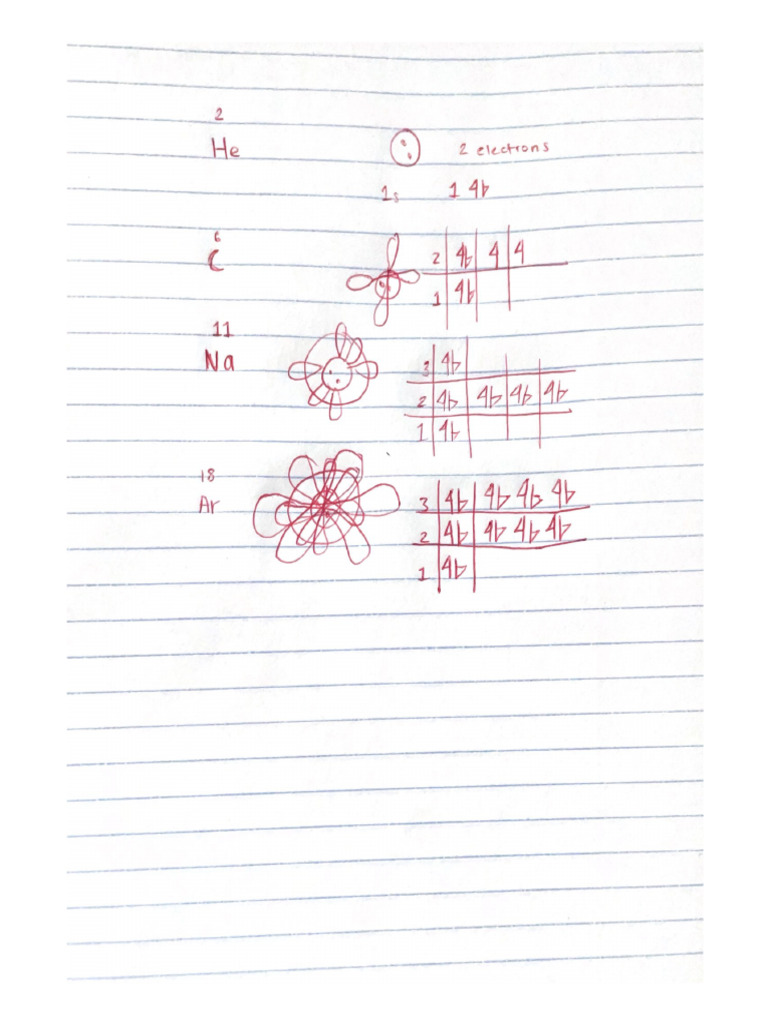 2
He 2 electrons
1s 1 ⥮
6
C 2 ⥮ ↿ ↿
1 ⥮
11
Na 3 ⥮
2 ⥮ ⥮ ⥮ ⥮
1 ⥮
18
Ar 3 ⥮ ⥮ ⥮ ⥮
2 ⥮ ⥮ ⥮ ⥮
1 ⥮